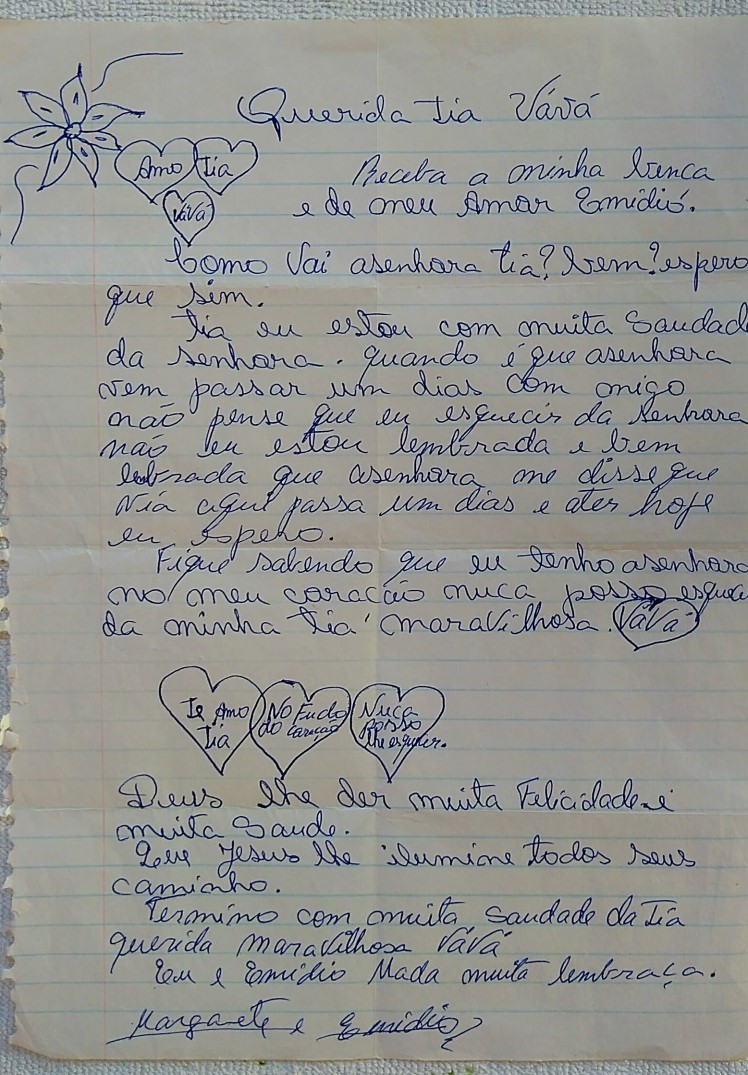 Querida tia Vává
Amo tia
VáVá
Receba a minha benca
e de meu Amor Emidió.
Como Vai asenhora tia? bem? espero
que sim.
tia eu estou com muita Saudad
da senhora. quando é que asenhora
vem passar um dias com migo
não pense que eu esquecir da senhora
não eu estou lembrada e bem
lebrada que asenhora me disse que
via aqui passa um dias e ater hoje
eu espero.
Fique sabendo que eu tenho asenhora
no meu coracão nuca posso esque
da minha tia maravilhosa. VáVá
Te Amo
tia
No Fudo
do Coração
Nuca
posso
lhe esquecer.
Deus lhe der muita Felicidade e
muita Saude.
Que Jesus lhe ilumine todos seus
caminho.
Termino com muita saudade da tia
querida maravilhosa VáVá
Eu e Emidio Mada muita lembraça.
Margarete e Emidio